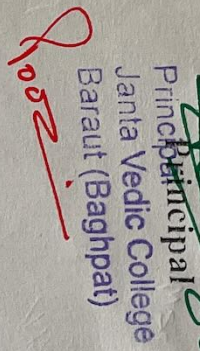 Principal
Principal
Janta Vedic College
Baraut (Baghpat)